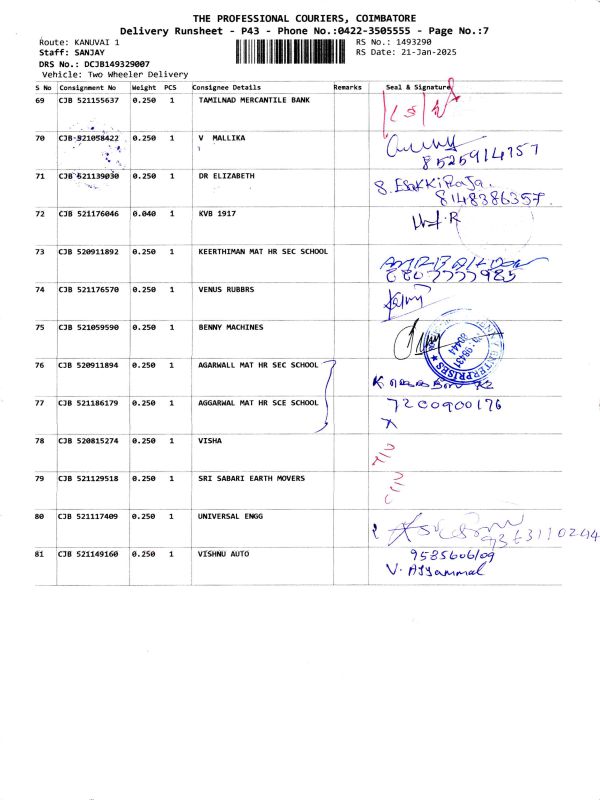 THE PROFESSIONAL COURIERS, COIMBATORE
Delivery Runsheet - P43 - Phone No.:0422-3505555 - Page No.:7
Route: KANUVAI 1
RS No.: 1493290
Staff: SANJAY
RS Date: 21-Jan-2025
DRS No.: DCJB149329007
Vehicle: Two Wheeler Delivery
S No Consignment No Weight PCS Consignee Details Remarks Seal & Signature
69 CJB 521155637 0.250 1 TAMILNAD MERCANTILE BANK
70 CJB 521058422 0.250 1 V MALLIKA
8525914757
71 CJB 521139030 0.250 1 DR ELIZABETH
8. EsakkiRaja.
8148386357.
72 CJB 521176046 0.040 1 KVB 1917
73 CJB 520911892 0.250 1 KEERTHIMAN MAT HR SEC SCHOOL
74 CJB 521176570 0.250 1 VENUS RUBBRS
75 CJB 521059590 0.250 1 BENNY MACHINES
ENTERPRISES
76 CJB 520911894 0.250 1 AGARWALL MAT HR SEC SCHOOL
77 CJB 521186179 0.250 1 AGGARWAL MAT HR SCE SCHOOL
7200900176
78 CJB 520815274 0.250 1 VISHA
79 CJB 521129518 0.250 1 SRI SABARI EARTH MOVERS
80 CJB 521117409 0.250 1 UNIVERSAL ENGG
81 CJB 521149160 0.250 1 VISHNU AUTO
9585606109
V. Ayyammal